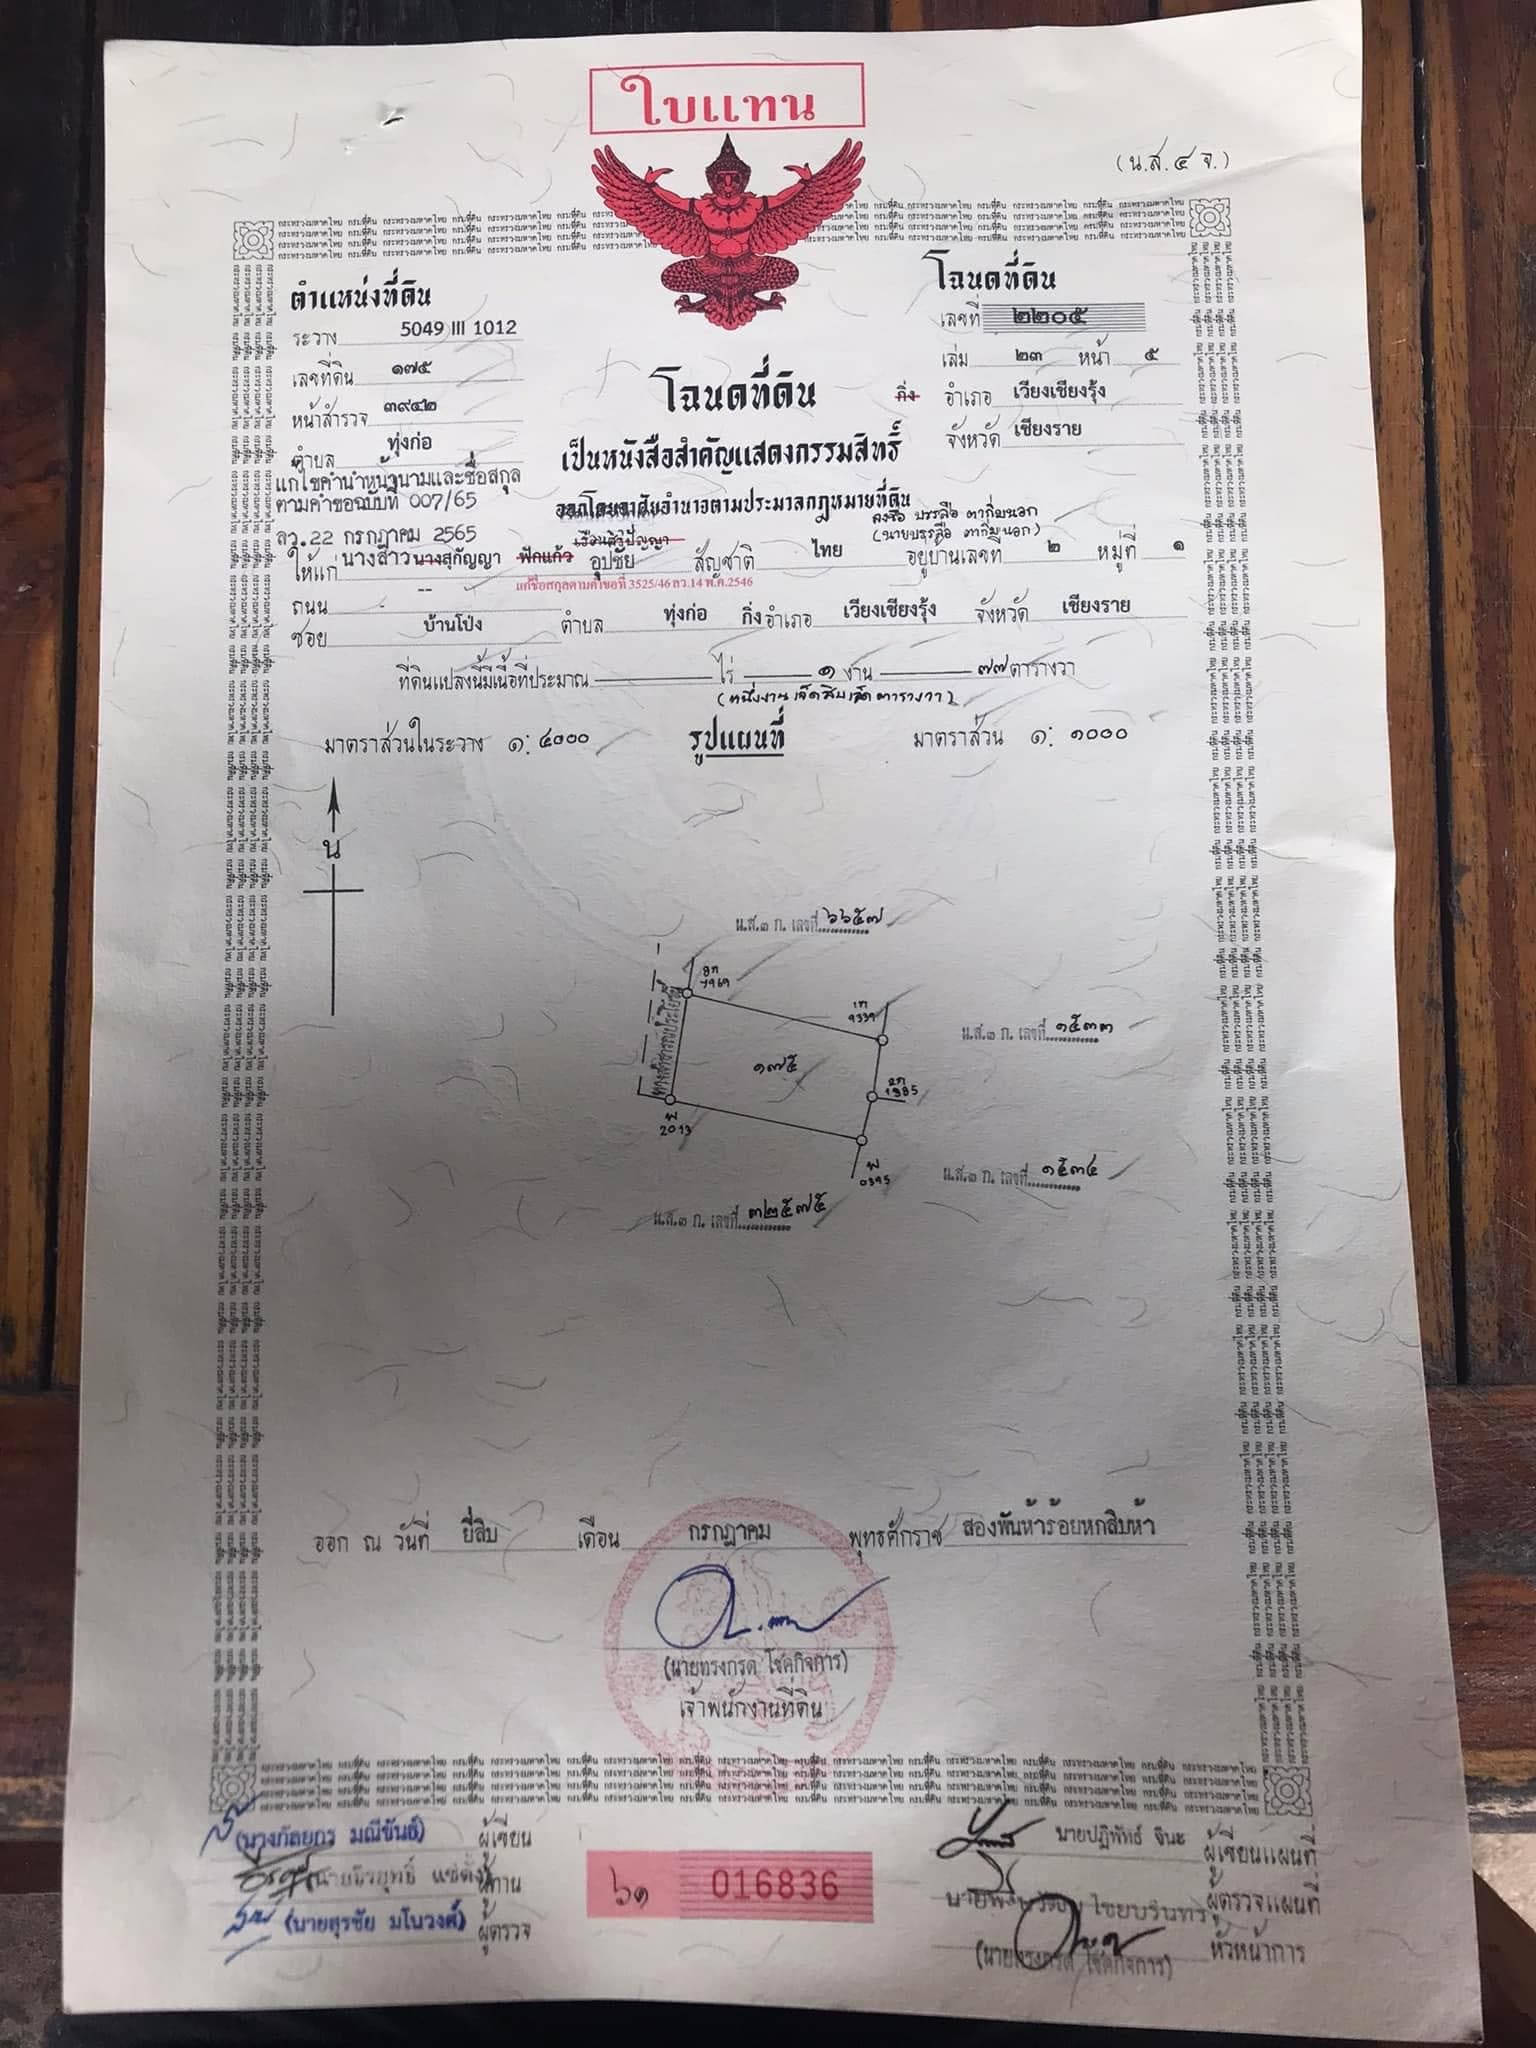 ใบแทน
(น.ส.๔ จ.)
ตำแหน่งที่ดิน
ระวาง 5049 III 1012
เลขที่ดิน ๑๗๕
หน้าสำรวจ ๓๙๔๒
ตำบล ทุ่งก่อ
โฉนดที่ดิน
เลขที่ ๒๒๐๕
เล่ม ๒๓ หน้า ๕
กิ่ง อำเภอ เวียงเชียงรุ้ง
จังหวัด เชียงราย
โฉนดที่ดิน
เป็นหนังสือสำคัญแสดงกรรมสิทธิ์
ออกโดยอาศัยอำนาจตามประมวลกฎหมายที่ดิน
แก้ไขคำนำหน้านามและชื่อสกุล
ตามคำขอฉบับที่ 007/65
ลว.22 กรกฎาคม 2565
ให้แก่ นางสาว นาง สุกัญญา ฟักแก้ว เรือนสิริปัญญา อุปชัย สัญชาติ ไทย อยู่บ้านเลขที่ ๒ หมู่ที่ ๑
แก้ชื่อสกุลตามคำขอที่ 3525/46 ลว.14 พ.ค.2546
ถนน --
ซอย บ้านโป่ง ตำบล ทุ่งก่อ กิ่ง อำเภอ เวียงเชียงรุ้ง จังหวัด เชียงราย
ที่ดินแปลงนี้มีเนื้อที่ประมาณ ไร่ ๑ งาน ๗๗ ตารางวา
(หนึ่งงานเจ็ดสิบเจ็ดตารางวา)
มาตราส่วนในระวาง ๑:๔๐๐๐ รูปแผนที่ มาตราส่วน ๑:๑๐๐๐
น
น.ส.๓ ก. เลขที่ ๖๖๕๗
ทางสาธารณประโยชน์
๑๗๕
น.ส.๓ ก. เลขที่ ๑๕๓๓
พ
2013
พ
น.ส.๓ ก. เลขที่ ๑๕๓๔
น.ส.๓ ก. เลขที่ ๓๒๕๗๕
ออก ณ วันที่ ยี่สิบ เดือน กรกฎาคม พุทธศักราช สองพันห้าร้อยหกสิบห้า
(นายทรงกรด โชคกิจการ)
เจ้าพนักงานที่ดิน
(นางกัลยกร มณีขันธ์) ผู้เขียน
ผู้ทาน
(นายสุรชัย มโนวงค์) ผู้ตรวจ
๖๑ 016836
นายปฏิพัทธ์ จินะ ผู้เขียนแผนที่
ไชยบรินทร์ ผู้ตรวจแผนที่
(นายทรงกรด โชคกิจการ) หัวหน้าการ